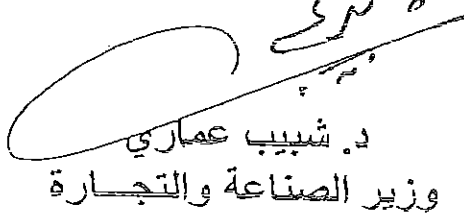 د. شبيب عماري
وزير الصناعة والتجارة